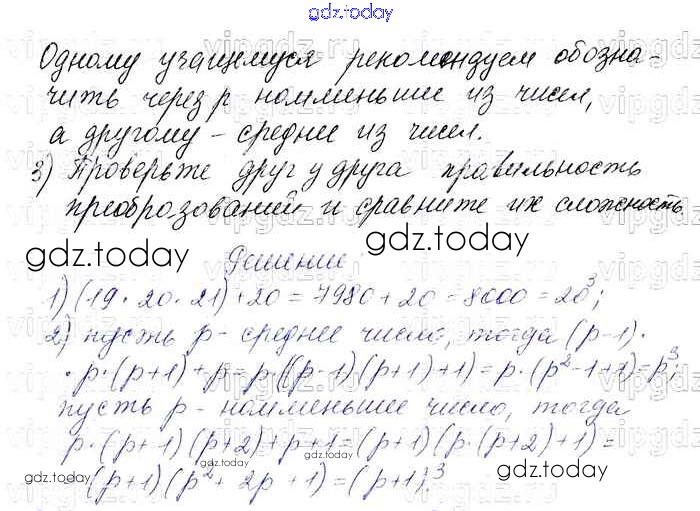 gdz.today
Одному учащемуся рекомендуем обозна-
чить через p наименьшие из чисел,
а другому - среднее из чисел.
3) Проверьте друг у друга правильность
преобразований и сравните их сложность
gdz.today gdz.today
Решение:
1) (19 · 20 · 21) + 20 = 7980 + 20 = 8000 = 20³;
2) пусть p - среднее число, тогда (p-1) ·
· p · (p+1) + p = p · ((p-1)(p+1)+1) = p · (p²-1+1) = p³;
пусть p - наименьшее число, тогда
p · (p+1)(p+2)+p+1 = (p+1)(p · (p+2)+1) =
gdz.today gdz.today gdz.today
= (p+1)(p²+2p+1) = (p+1)³